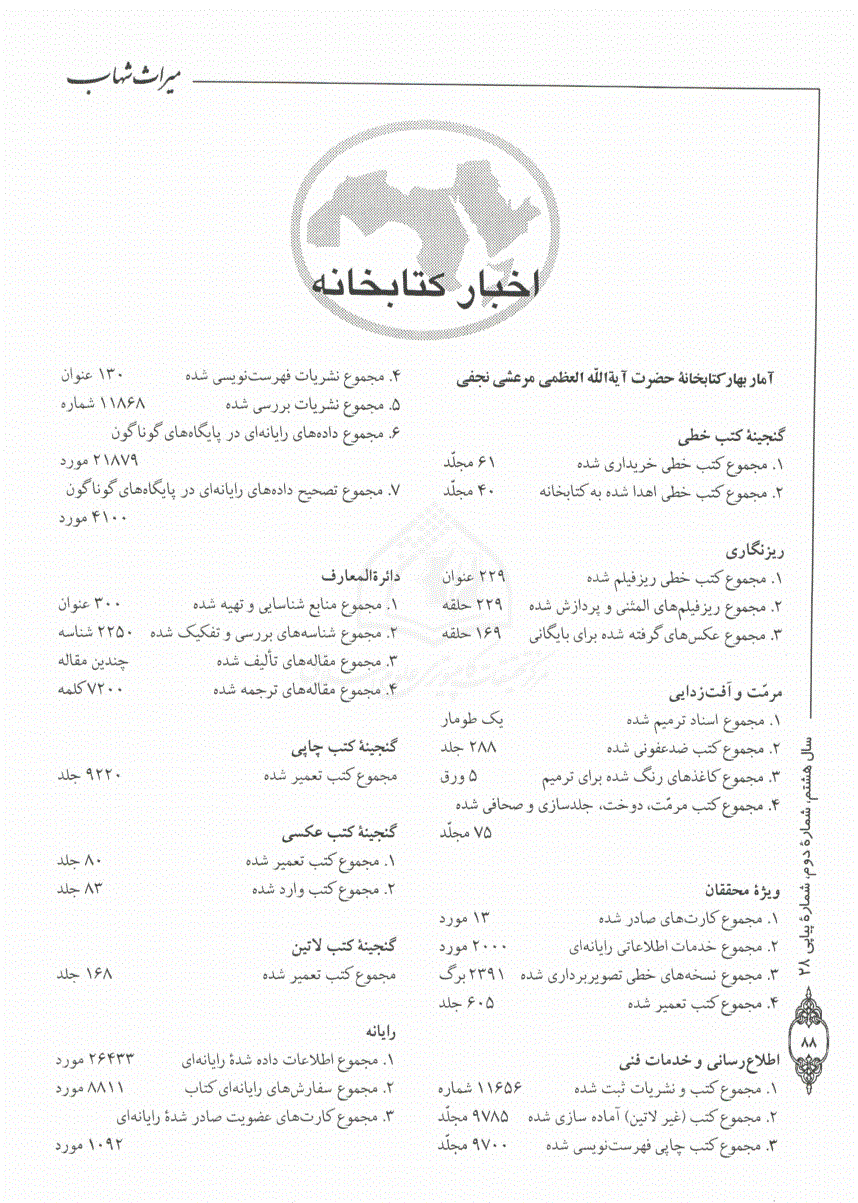 میراث شهاب
اخبار کتابخانه
آمار بهار کتابخانهٔ حضرت آیةاللّه العظمی مرعشی نجفی
گنجینهٔ کتب خطی
۱. مجموع کتب خطی خریداری شده ۶۱ مجلّد
۲. مجموع کتب خطی اهدا شده به کتابخانه ۴۰ مجلّد
ریزنگاری
۱. مجموع کتب خطی ریزفیلم شده ۲۲۹ عنوان
۲. مجموع ریزفیلم‌های المثنی و پردازش شده ۲۲۹ حلقه
۳. مجموع عکس‌های گرفته شده برای بایگانی ۱۶۹ حلقه
مرمّت و آفت‌زدایی
۱. مجموع اسناد ترمیم شده یک طومار
۲. مجموع کتب ضدعفونی شده ۲۸۸ جلد
۳. مجموع کاغذهای رنگ شده برای ترمیم ۵ ورق
۴. مجموع کتب مرمّت، دوخت، جلدسازی و صحافی شده
۷۵ مجلّد
ویژهٔ محققان
۱. مجموع کارت‌های صادر شده ۱۳ مورد
۲. مجموع خدمات اطلاعاتی رایانه‌ای ۲۰۰۰ مورد
۳. مجموع نسخه‌های خطی تصویربرداری شده ۲۳۹۱ برگ
۴. مجموع کتب تعمیر شده ۶۰۵ جلد
اطلاع‌رسانی و خدمات فنی
۱. مجموع کتب و نشریات ثبت شده ۱۱۶۵۶ شماره
۲. مجموع کتب (غیر لاتین) آماده سازی شده ۹۷۸۵ مجلّد
۳. مجموع کتب چاپی فهرست‌نویسی شده ۹۷۰۰ مجلّد
۴. مجموع نشریات فهرست‌نویسی شده ۱۳۰ عنوان
۵. مجموع نشریات بررسی شده ۱۱۸۶۸ شماره
۶. مجموع داده‌های رایانه‌ای در پایگاه‌های گوناگون
۲۱۸۷۹ مورد
۷. مجموع تصحیح داده‌های رایانه‌ای در پایگاه‌های گوناگون
۴۱۰۰ مورد
دائرةالمعارف
۱. مجموع منابع شناسایی و تهیه شده ۳۰۰ عنوان
۲. مجموع شناسه‌های بررسی و تفکیک شده ۲۲۵۰ شناسه
۳. مجموع مقاله‌های تألیف شده چندین مقاله
۴. مجموع مقاله‌های ترجمه شده ۷۲۰۰ کلمه
گنجینهٔ کتب چاپی
مجموع کتب تعمیر شده ۹۲۲۰ جلد
گنجینهٔ کتب عکسی
۱. مجموع کتب تعمیر شده ۸۰ جلد
۲. مجموع کتب وارد شده ۸۳ جلد
گنجینهٔ کتب لاتین
مجموع کتب تعمیر شده ۱۶۸ جلد
رایانه
۱. مجموع اطلاعات داده شدهٔ رایانه‌ای ۲۶۴۳۳ مورد
۲. مجموع سفارش‌های رایانه‌ای کتاب ۸۸۱۱ مورد
۳. مجموع کارت‌های عضویت صادر شدهٔ رایانه‌ای
۱۰۹۲ مورد
سال هشتم، شمارهٔ دوم، شمارهٔ پیاپی ۲۸
۸۸